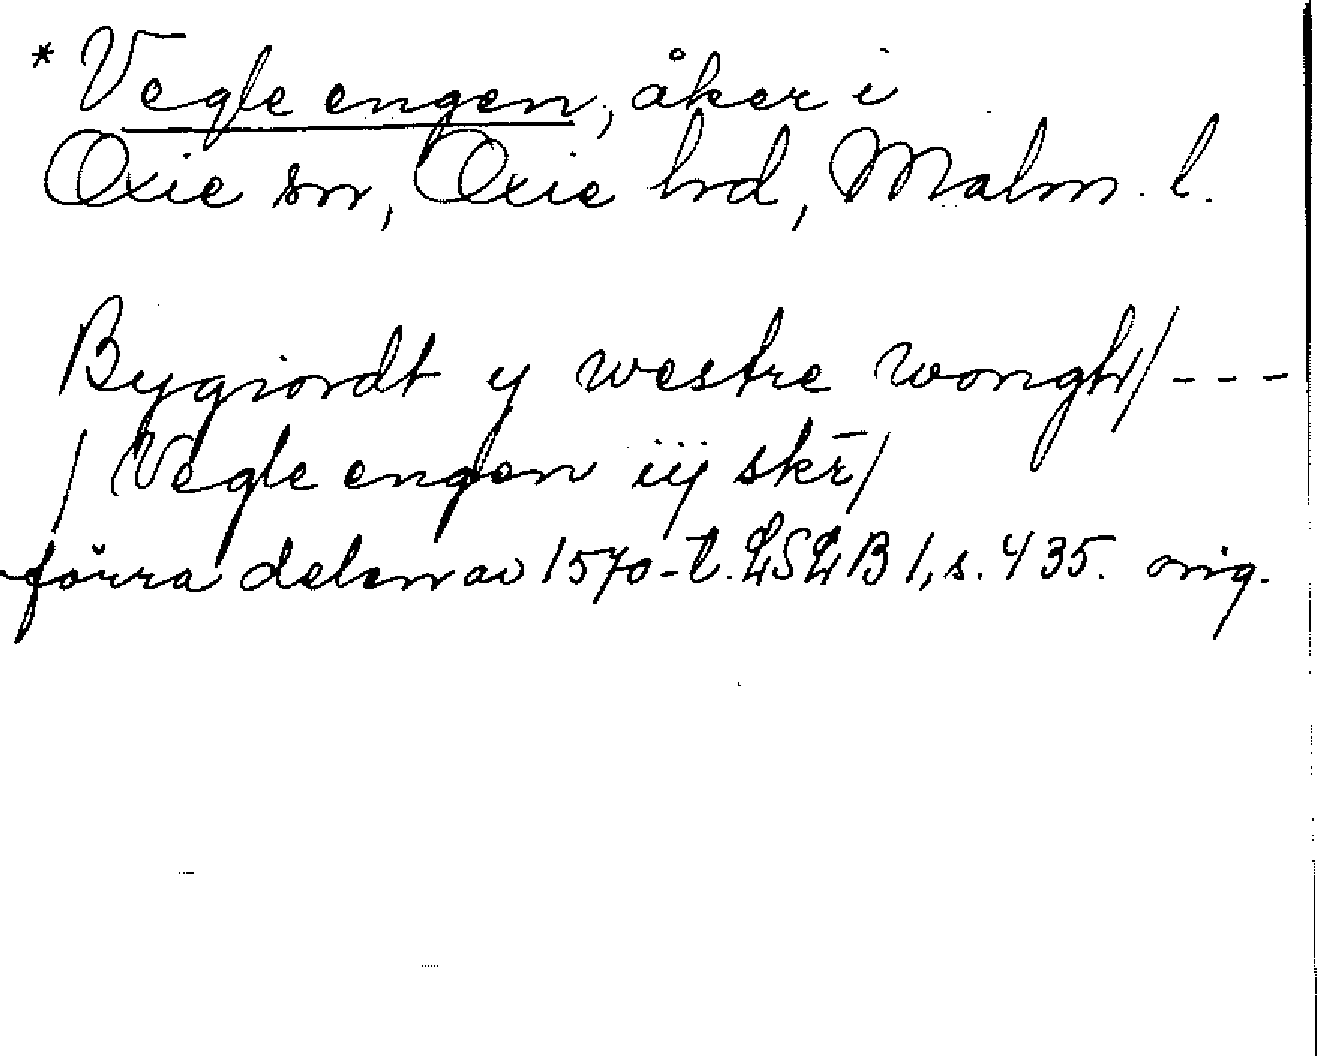 * Vegle engen, åker i
Oxie sn, Oxie hrd, Malm. l.
Bygiordt y westre wongh/ - - -
/ Vegle engen iij skr̄/
förra delen av 1570-t. LSLB 1, s. 435. orig.